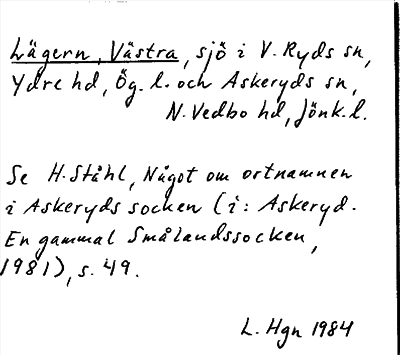 Lägern, Västra, sjö i V. Ryds sn,
Ydre hd, Ög. l. och Askeryds sn,
N. Vedbo hd, Jönk. l.
Se H. Ståhl, Något om ortnamnen
i Askeryds socken (i: Askeryd.
En gammal Smålandssocken,
1981), s. 49.
L. Hgn 1984